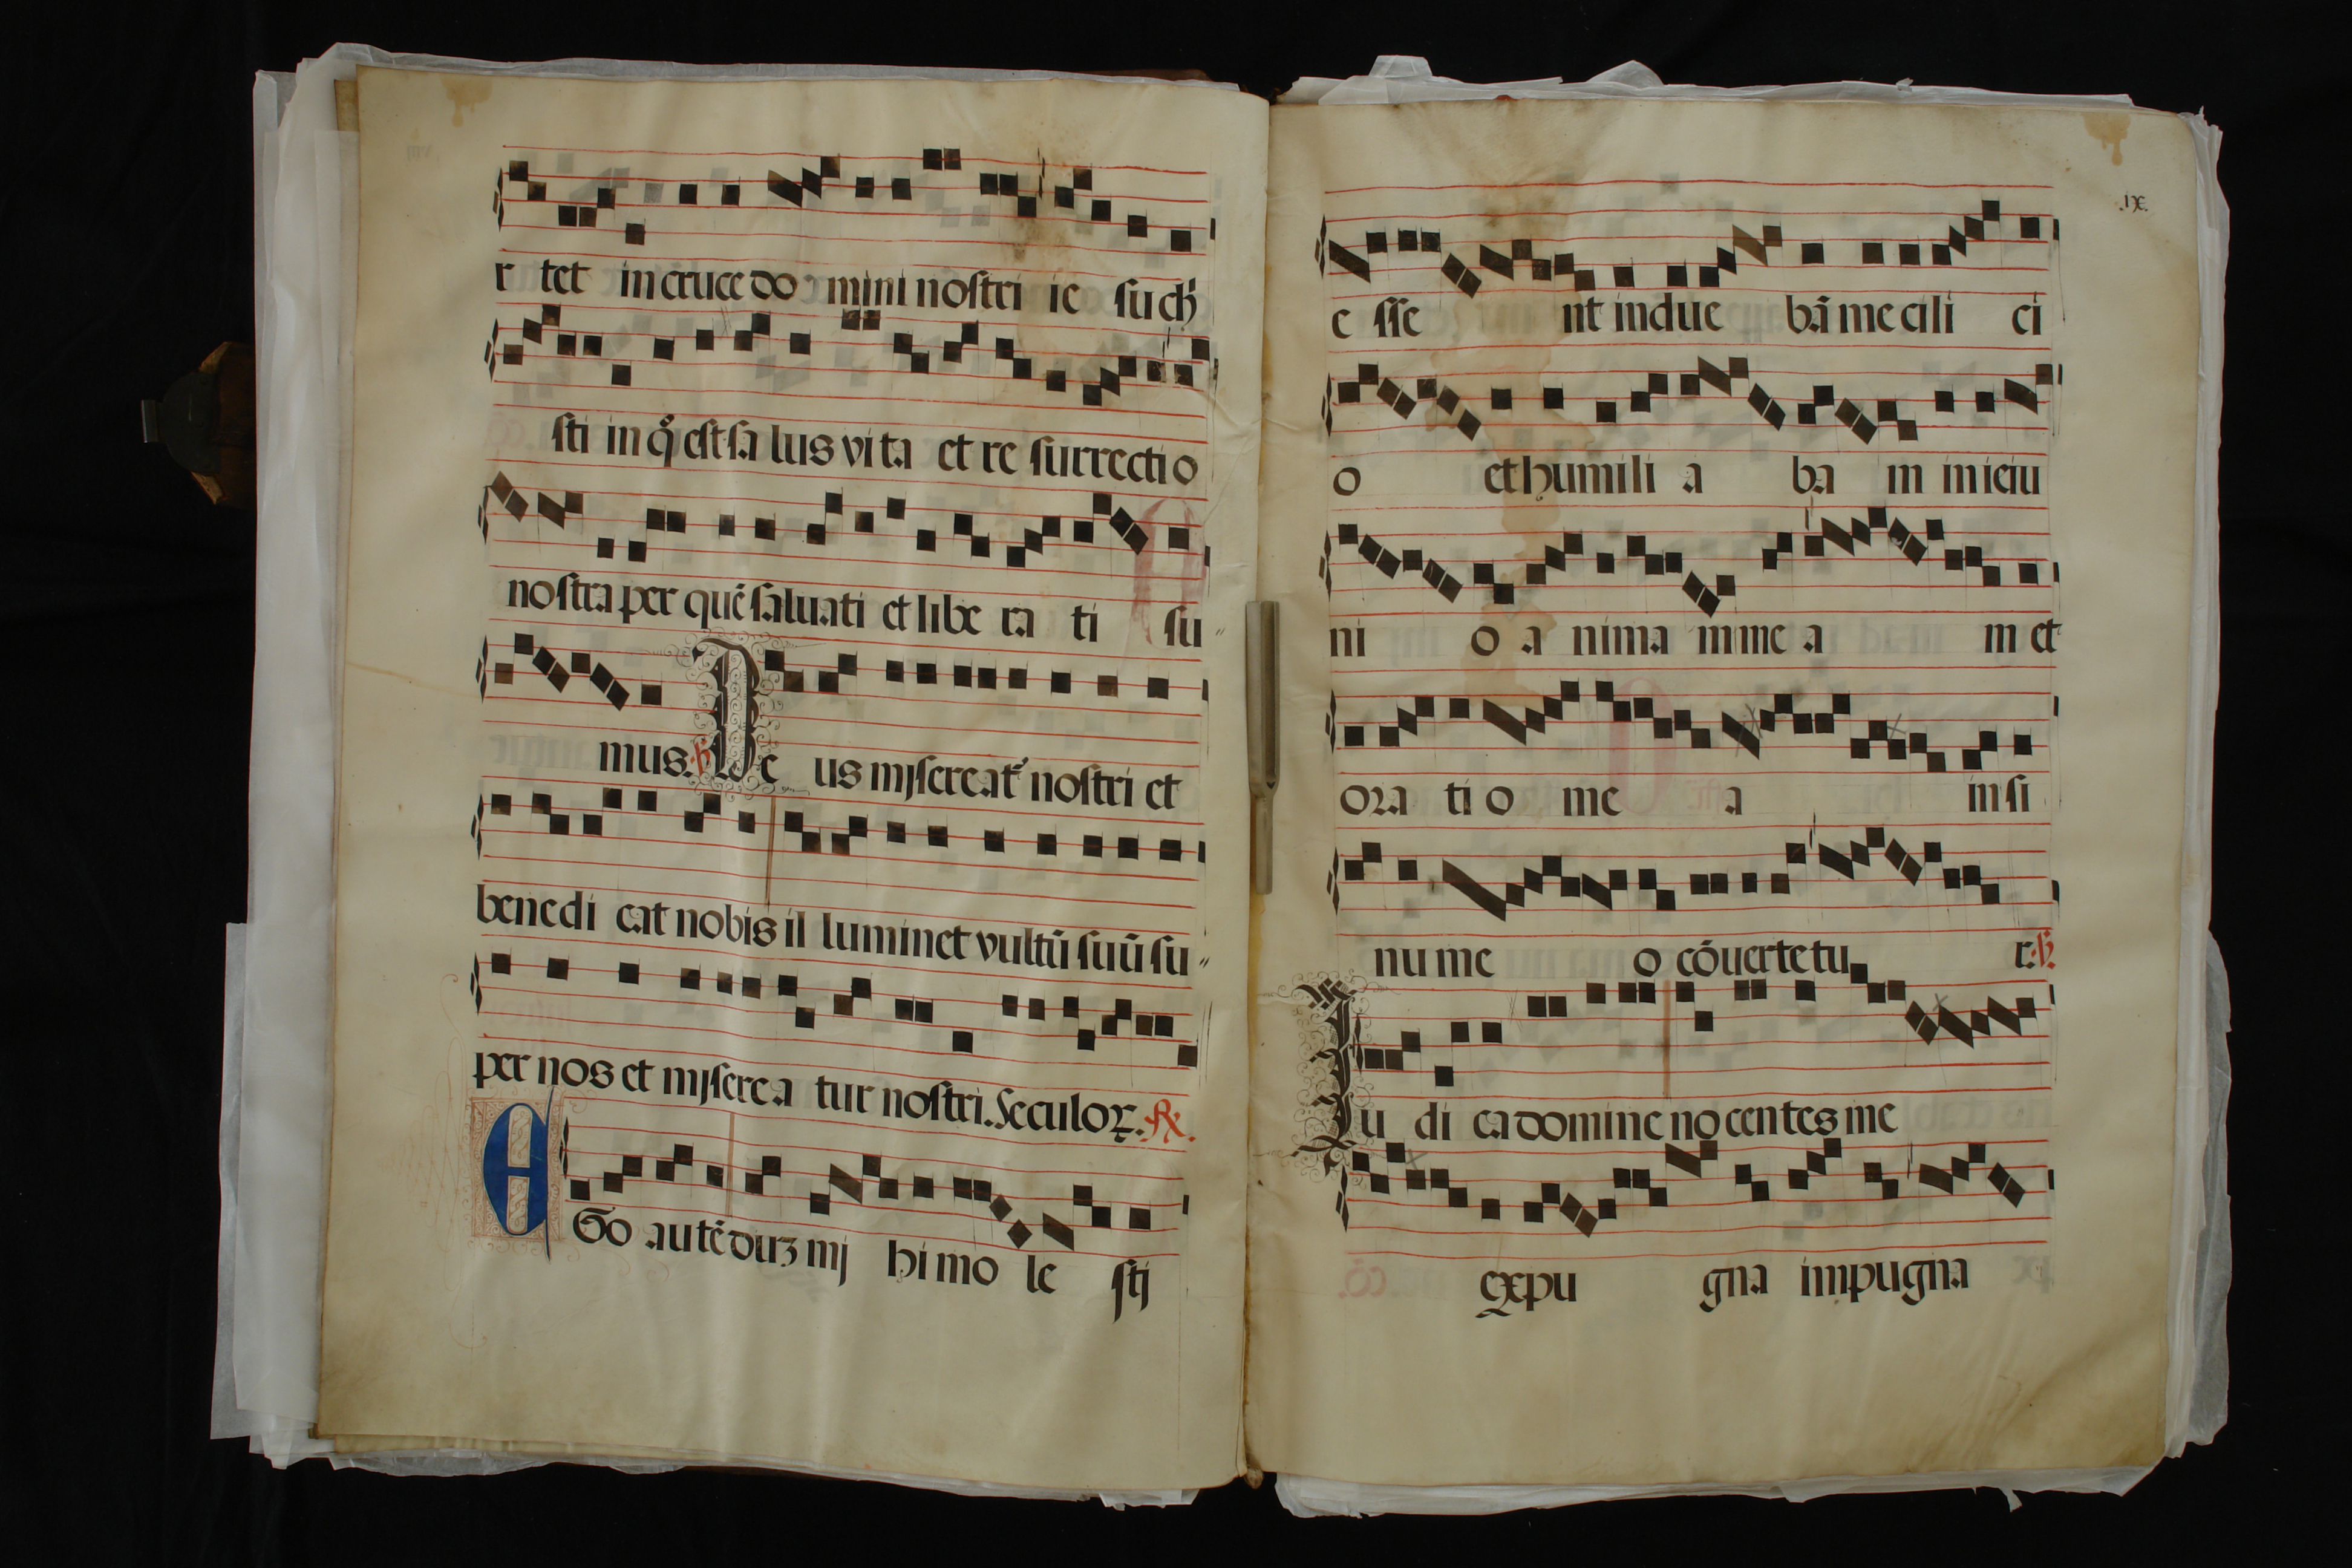 r tet in cruce do mini nostri ie su ch̄r
sti in q̄ est sa lus vi ta et re surrecti o
nostra per quē saluati et libe ra ti su
mus. ℣ De us misereat᷑ nostri et
benedi cat nobis il luminet vultū suū su
per nos et miserea tur nostri. Seculoꝝ. ℟.
EGo autē duꝫ mj hi mo le stj
.IX.
e sse nt indue bā me cili ci
o et humili a ba m in ieiu
ni o a nima m me a m et
ora ti o me a in si
nu me o cōuerte tu r. ℣.
Iu di ca domine nocentes me
expu gna impugna